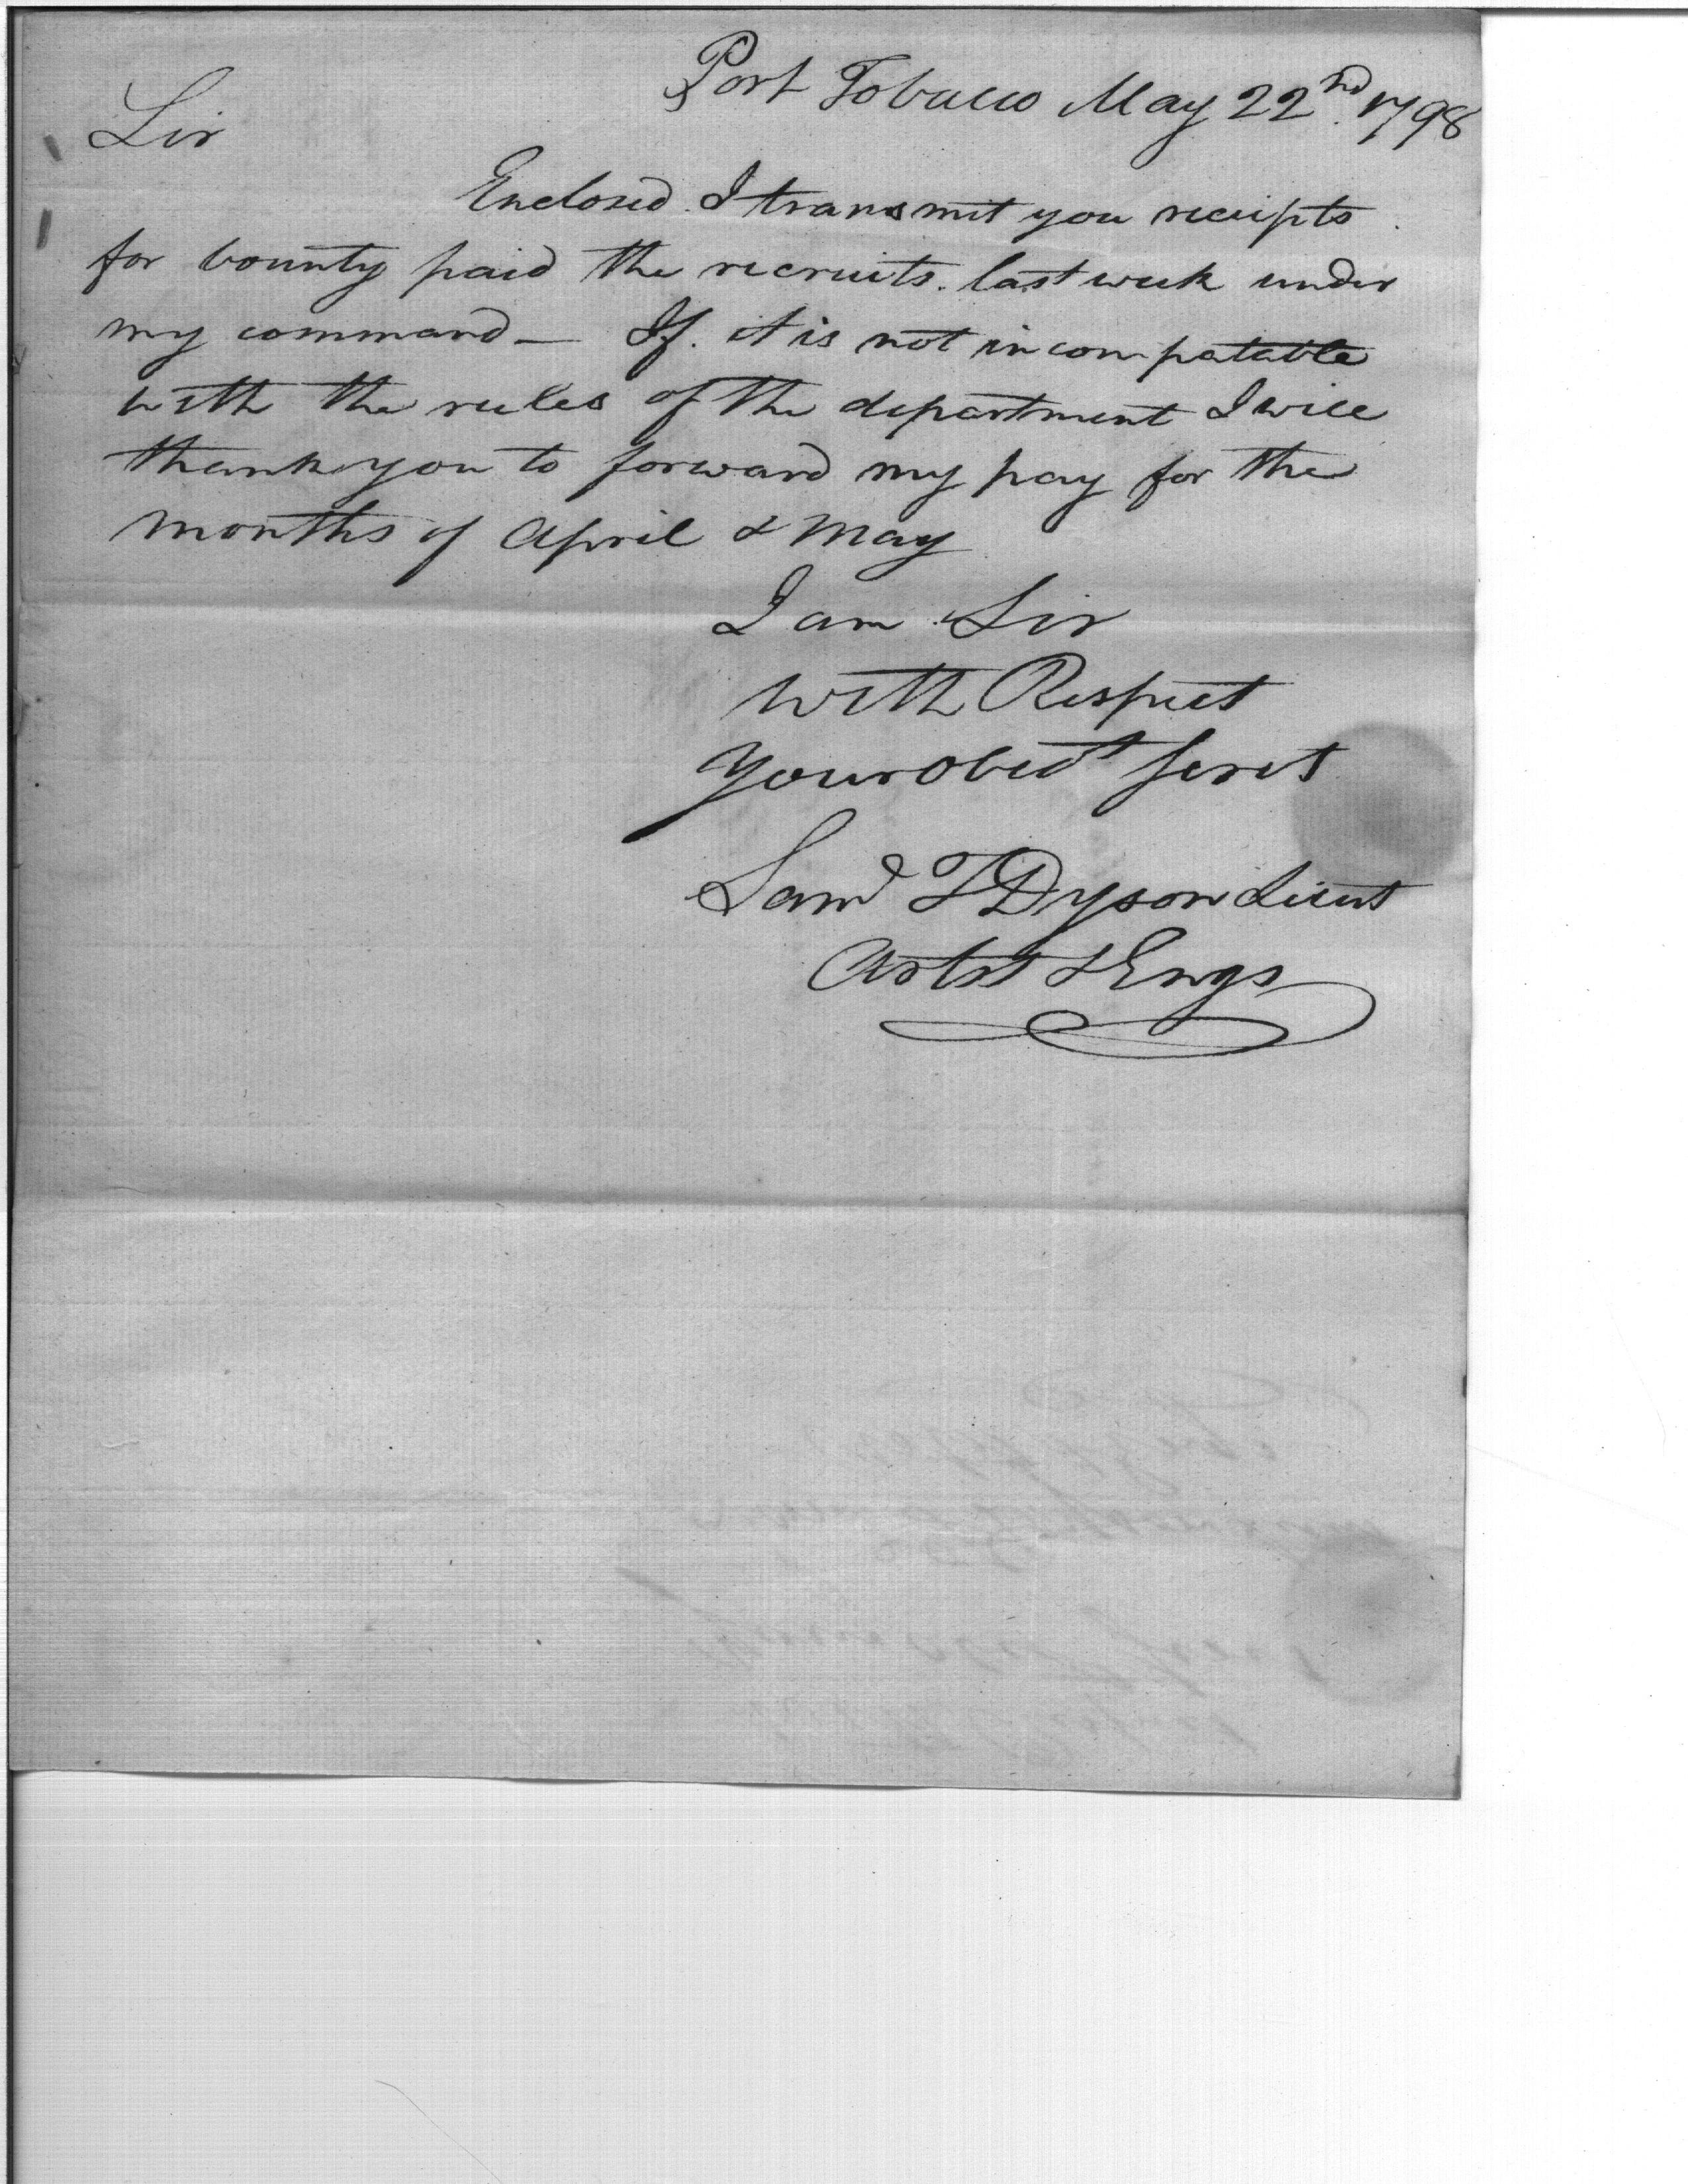 Port Tobacco May 22nd. 1798
Sir
Enclosed I transmit you receipts
for bounty paid the recruits. last week under
my command — If. it is not incompatable
with the rules of the department I will
thank you to forward my pay for the
months of April & May
I am Sir
with Respect
Your Obedt Servt
Saml T Dyson Lieut
Artst & Engs